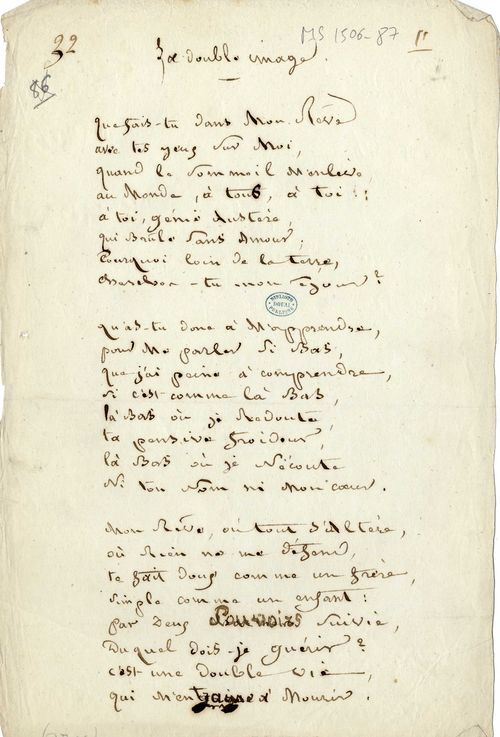 32
MS 1506-87
11
86
La double image.
que fais-tu dans Mon Rêve
avec tes yeux sur Moi,
quand le sommeil M'enlève,
au Monde, à tous, à toi !
à toi, génie Austère,
qui Brûle sans Amour,
Pourquoi loin de la terre,
cherches-tu mon séjour ?
BIBLIOTH
DOUAI
PUBLIQUE
qu'as-tu donc à M'apprendre,
pour Me parler si Bas,
que j'ai peine à comprendre,
si c'est comme là Bas,
là Bas où je Redoute,
ta pensive froideur,
là Bas où je N'écoute
Ni ton Nom ni Mon cœur.
Mon Rêve, où tout s'Altère,
où Rien ne me défend,
te fait doux comme un frère,
simple comme un enfant :
par deux Pouvoirs suivie,
Duquel dois-je guérir ?
c'est une double vie,
qui M'entraine à Mourir.